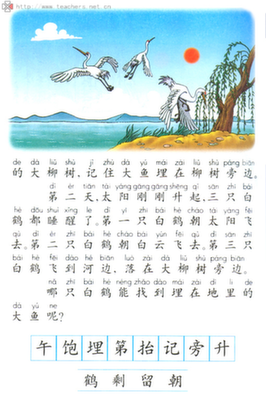 http://www.teachers.net.cn
de dà liǔ shù jì zhù dà yú mái zài liǔ shù páng biān
的大柳树,记住大鱼埋在柳树旁边。
dì èr tiān tài yáng gāng gāng shēng qǐ sān zhī bái
第二天,太阳刚刚升起,三只白
hè dōu shuì xǐng le dì yì zhī bái hè cháo tài yáng fēi
鹤都睡醒了。第一只白鹤朝太阳飞
qù dì èr zhī bái hè cháo bái yún fēi qù dì sān zhī
去。第二只白鹤朝白云飞去。第三只
bái hè fēi dào hé biān luò zài dà liǔ shù páng biān
白鹤飞到河边,落在大柳树旁边。
nǎ zhī bái hè néng zhǎo dào mái zài dì lǐ de
哪只白鹤能找到埋在地里的
dà yú ne
大鱼呢?
午饱埋第抬记旁升
鹤剩留朝